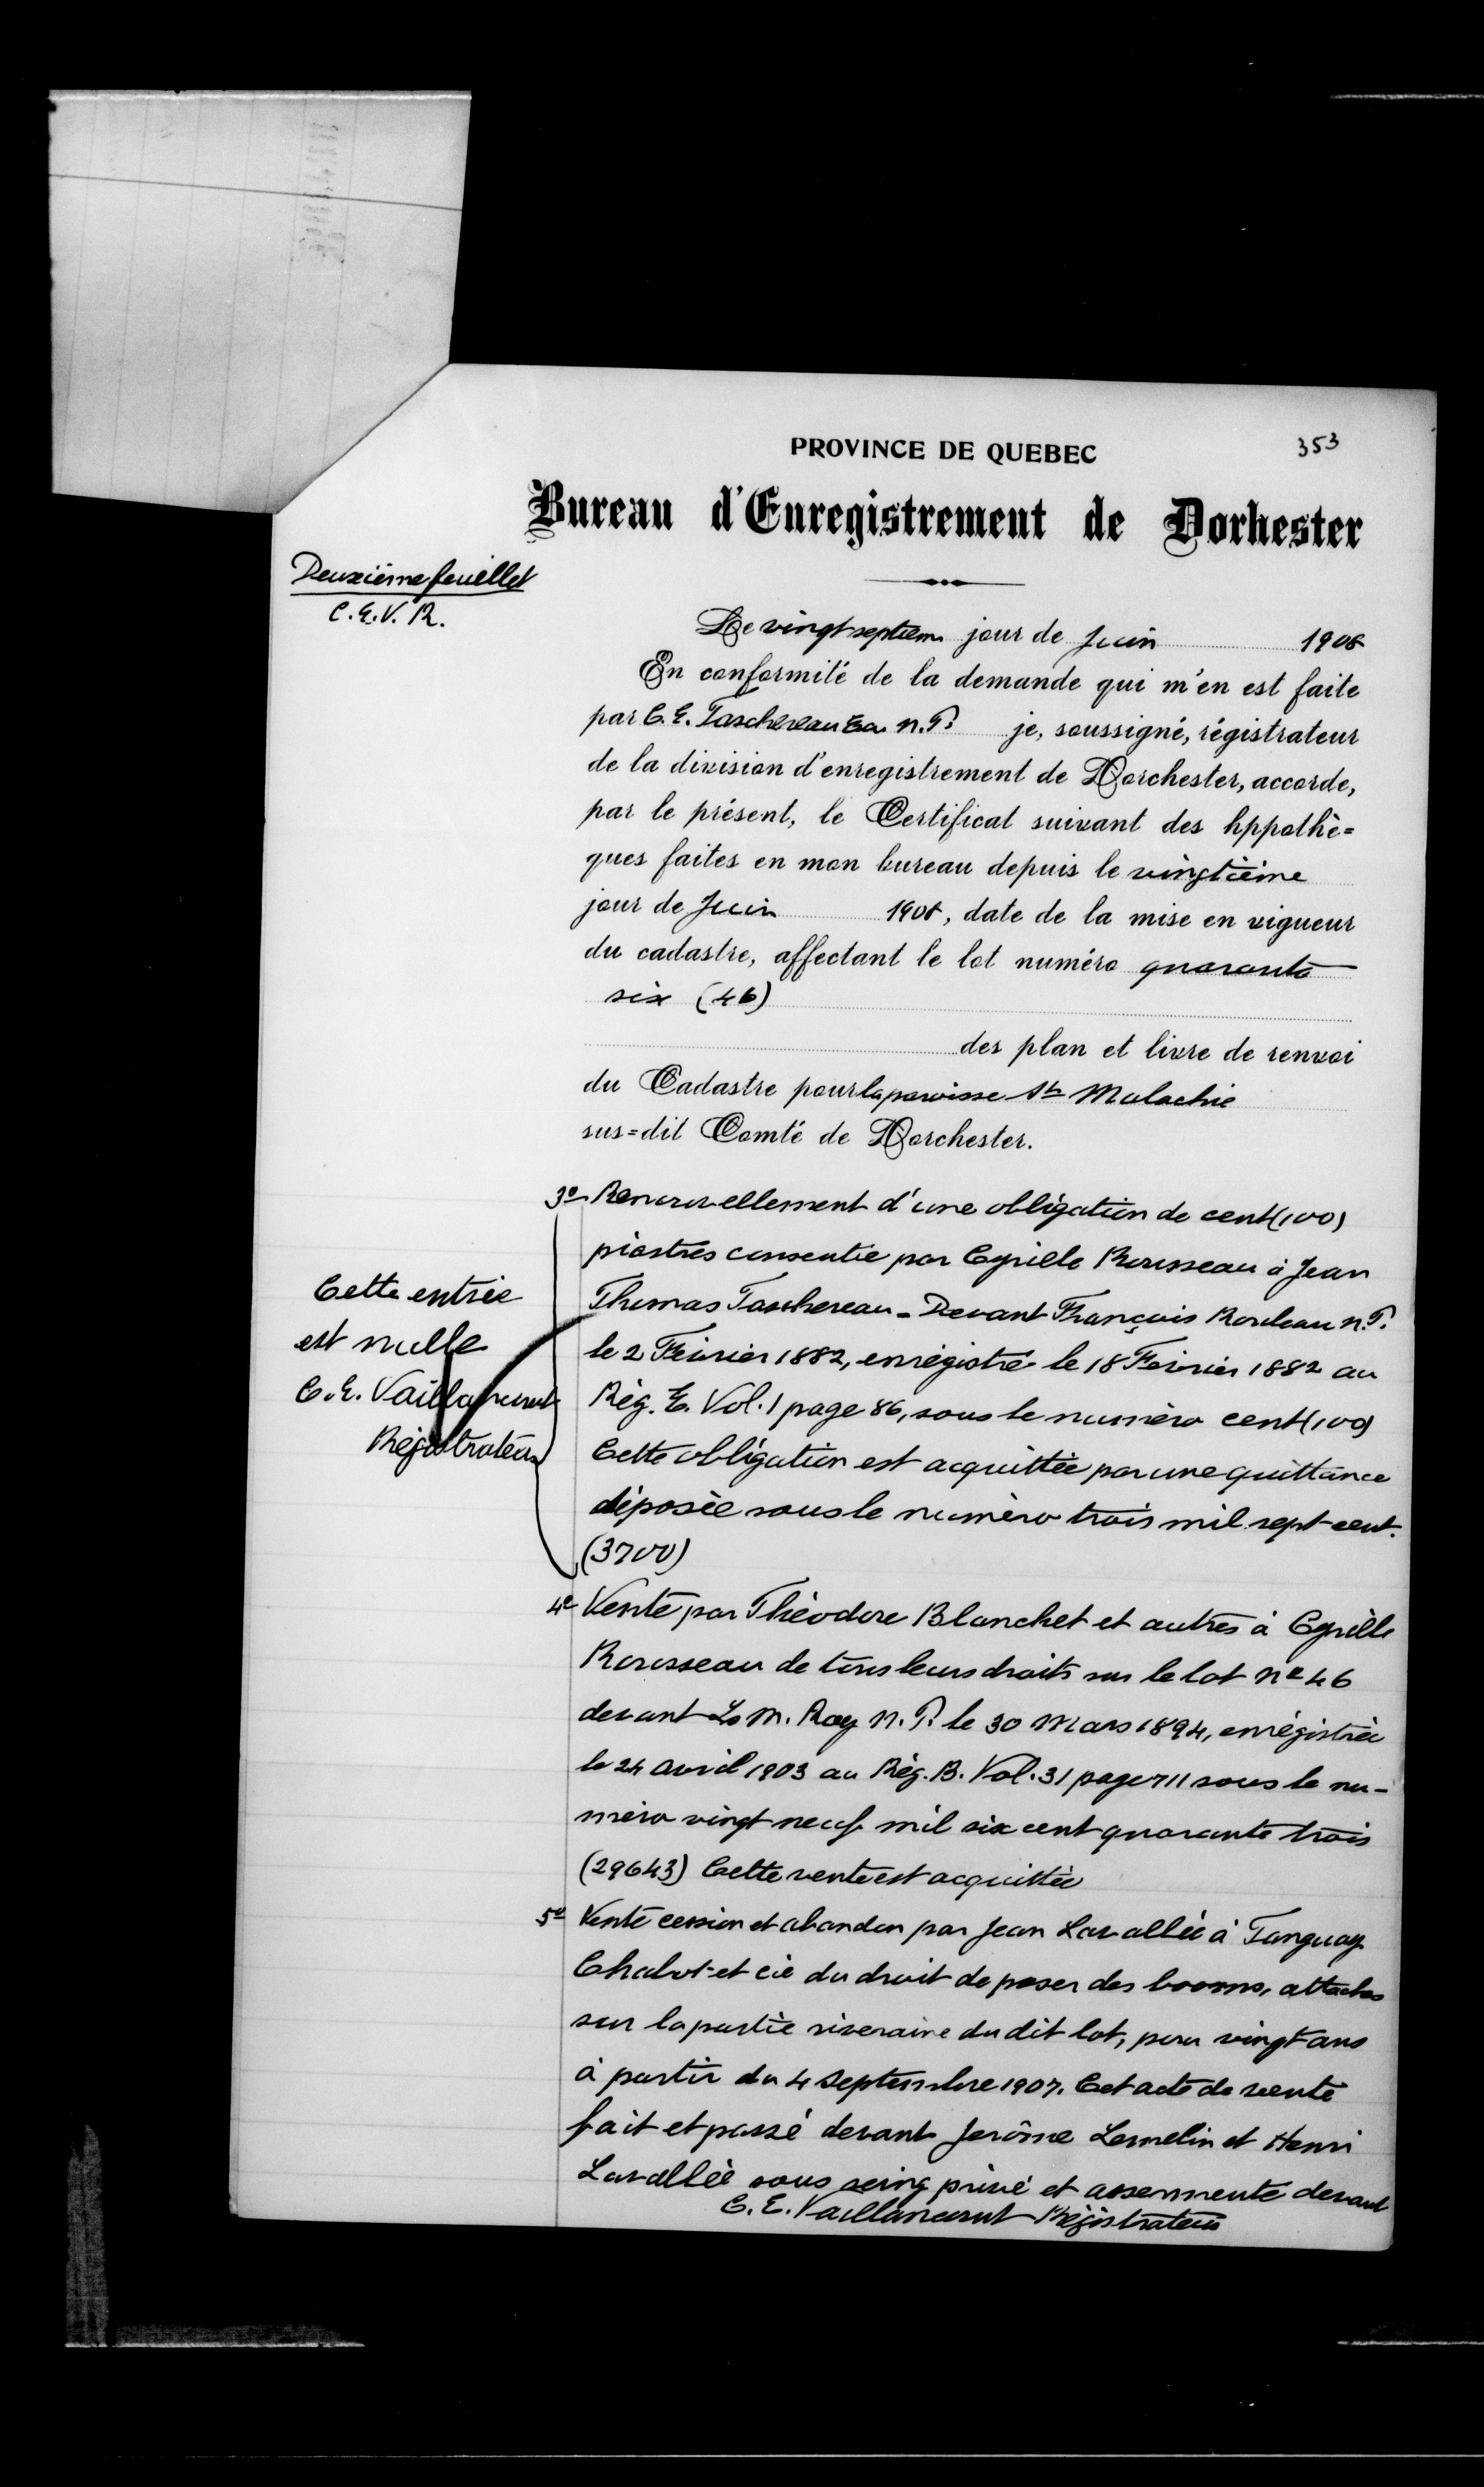 353
PROVINCE DE QUEBEC
Bureau d'Enregistrement de Dorhester
Deuxième feuillet
C.E.V.R.
Le vingt septièm jour de Juin 1908
En conformité de la demande qui m'en est faite
par C. E. Taschereau N.P. je, soussigné, régistrateur
de la division d'enregistrement de Dorchester, accorde,
par le présent, le Certificat suivant des hppothè=
ques faites en mon bureau depuis le vingtième
jour de Juin 1908, date de la mise en vigueur
du cadastre, affectant le lot numéro quarante
six (46)
des plan et livre de renvoi
du Cadastre pour la paroisse St Malachie
sus=dit Comté de Dorchester.
3º Renouvellement d'une obligation de cent (100)
piastres consentie par Cyrille Rousseau à Jean
Thomas Taschereau - Devant François Rouleau N.P.
le 2 Février 1882, enrégistré le 18 Février 1882 au
Rég. E. Vol. 1 page 86, sous le numéro cent (100)
Cette obligation est acquittée par une quittance
déposée sous le numéro trois mil sept cent.
(3700)
Cette entrée
est nulle
C. E. Vaillancourt
Régistrateur
4º Vente par Théodore Blanchet et autres à Cyrille
Rousseau de tous leurs droits sur le lot Nº 46
devant Ls M. Roy N.P. le 30 Mars 1894, enrégistrée
le 24 avril 1903 au Rég. B. Vol. 31 page 711 sous le nu-
méro vingt neuf mil six cent quarante trois
(29643) Cette vente est acquittée
5º Vente cession et abandon par Jean Lavallée à Tanguay
Chabot et cie du droit de poser des booms, attaches
sur la partie riveraine du dit lot, pour vingt ans
à partir du 4 Septembre 1907. Cet acte de vente
fait et passé devant Jerôme Lemelin et Henri
Lavallée sous seing privé et assermenté devant
C. E. Vaillancourt Régistrateur